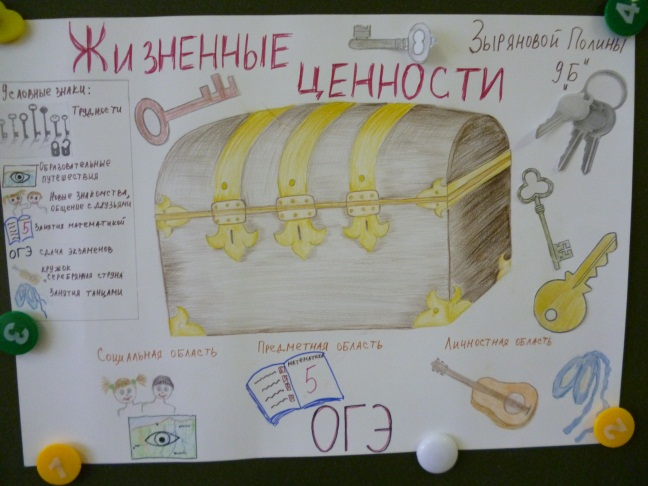 Жизненные
ценности
Зыряновой Полины
9 „Б"
Условные знаки:
Трудности
Образовательные
путешествия
Новые знакомства,
общение с друзьями
5
Занятия математикой
ОГЭ сдача экзаменов
кружок
„Серебряная струна
Занятия танцами
Социальная область
Предметная область
Личностная область
математика
5
ОГЭ
4
3
1
2